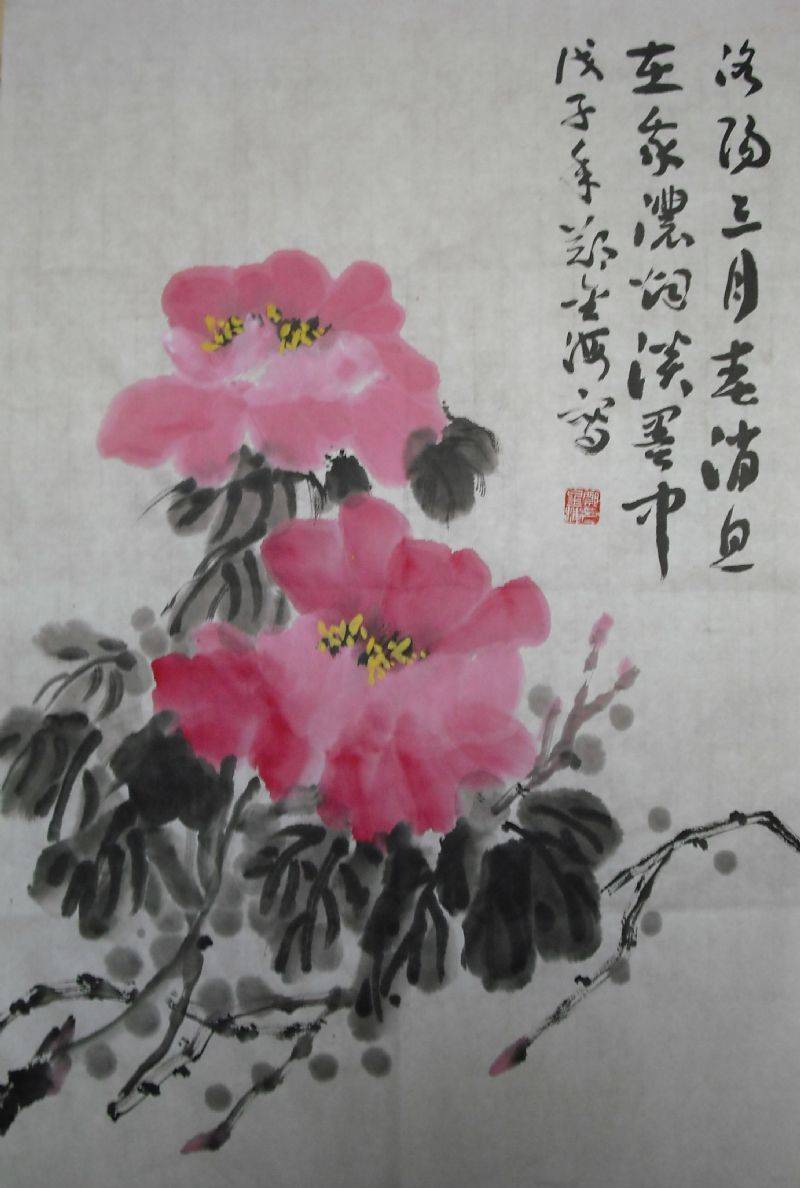 洛阳三月春消息
在我浓烟淡墨中
戊子年郑金海写